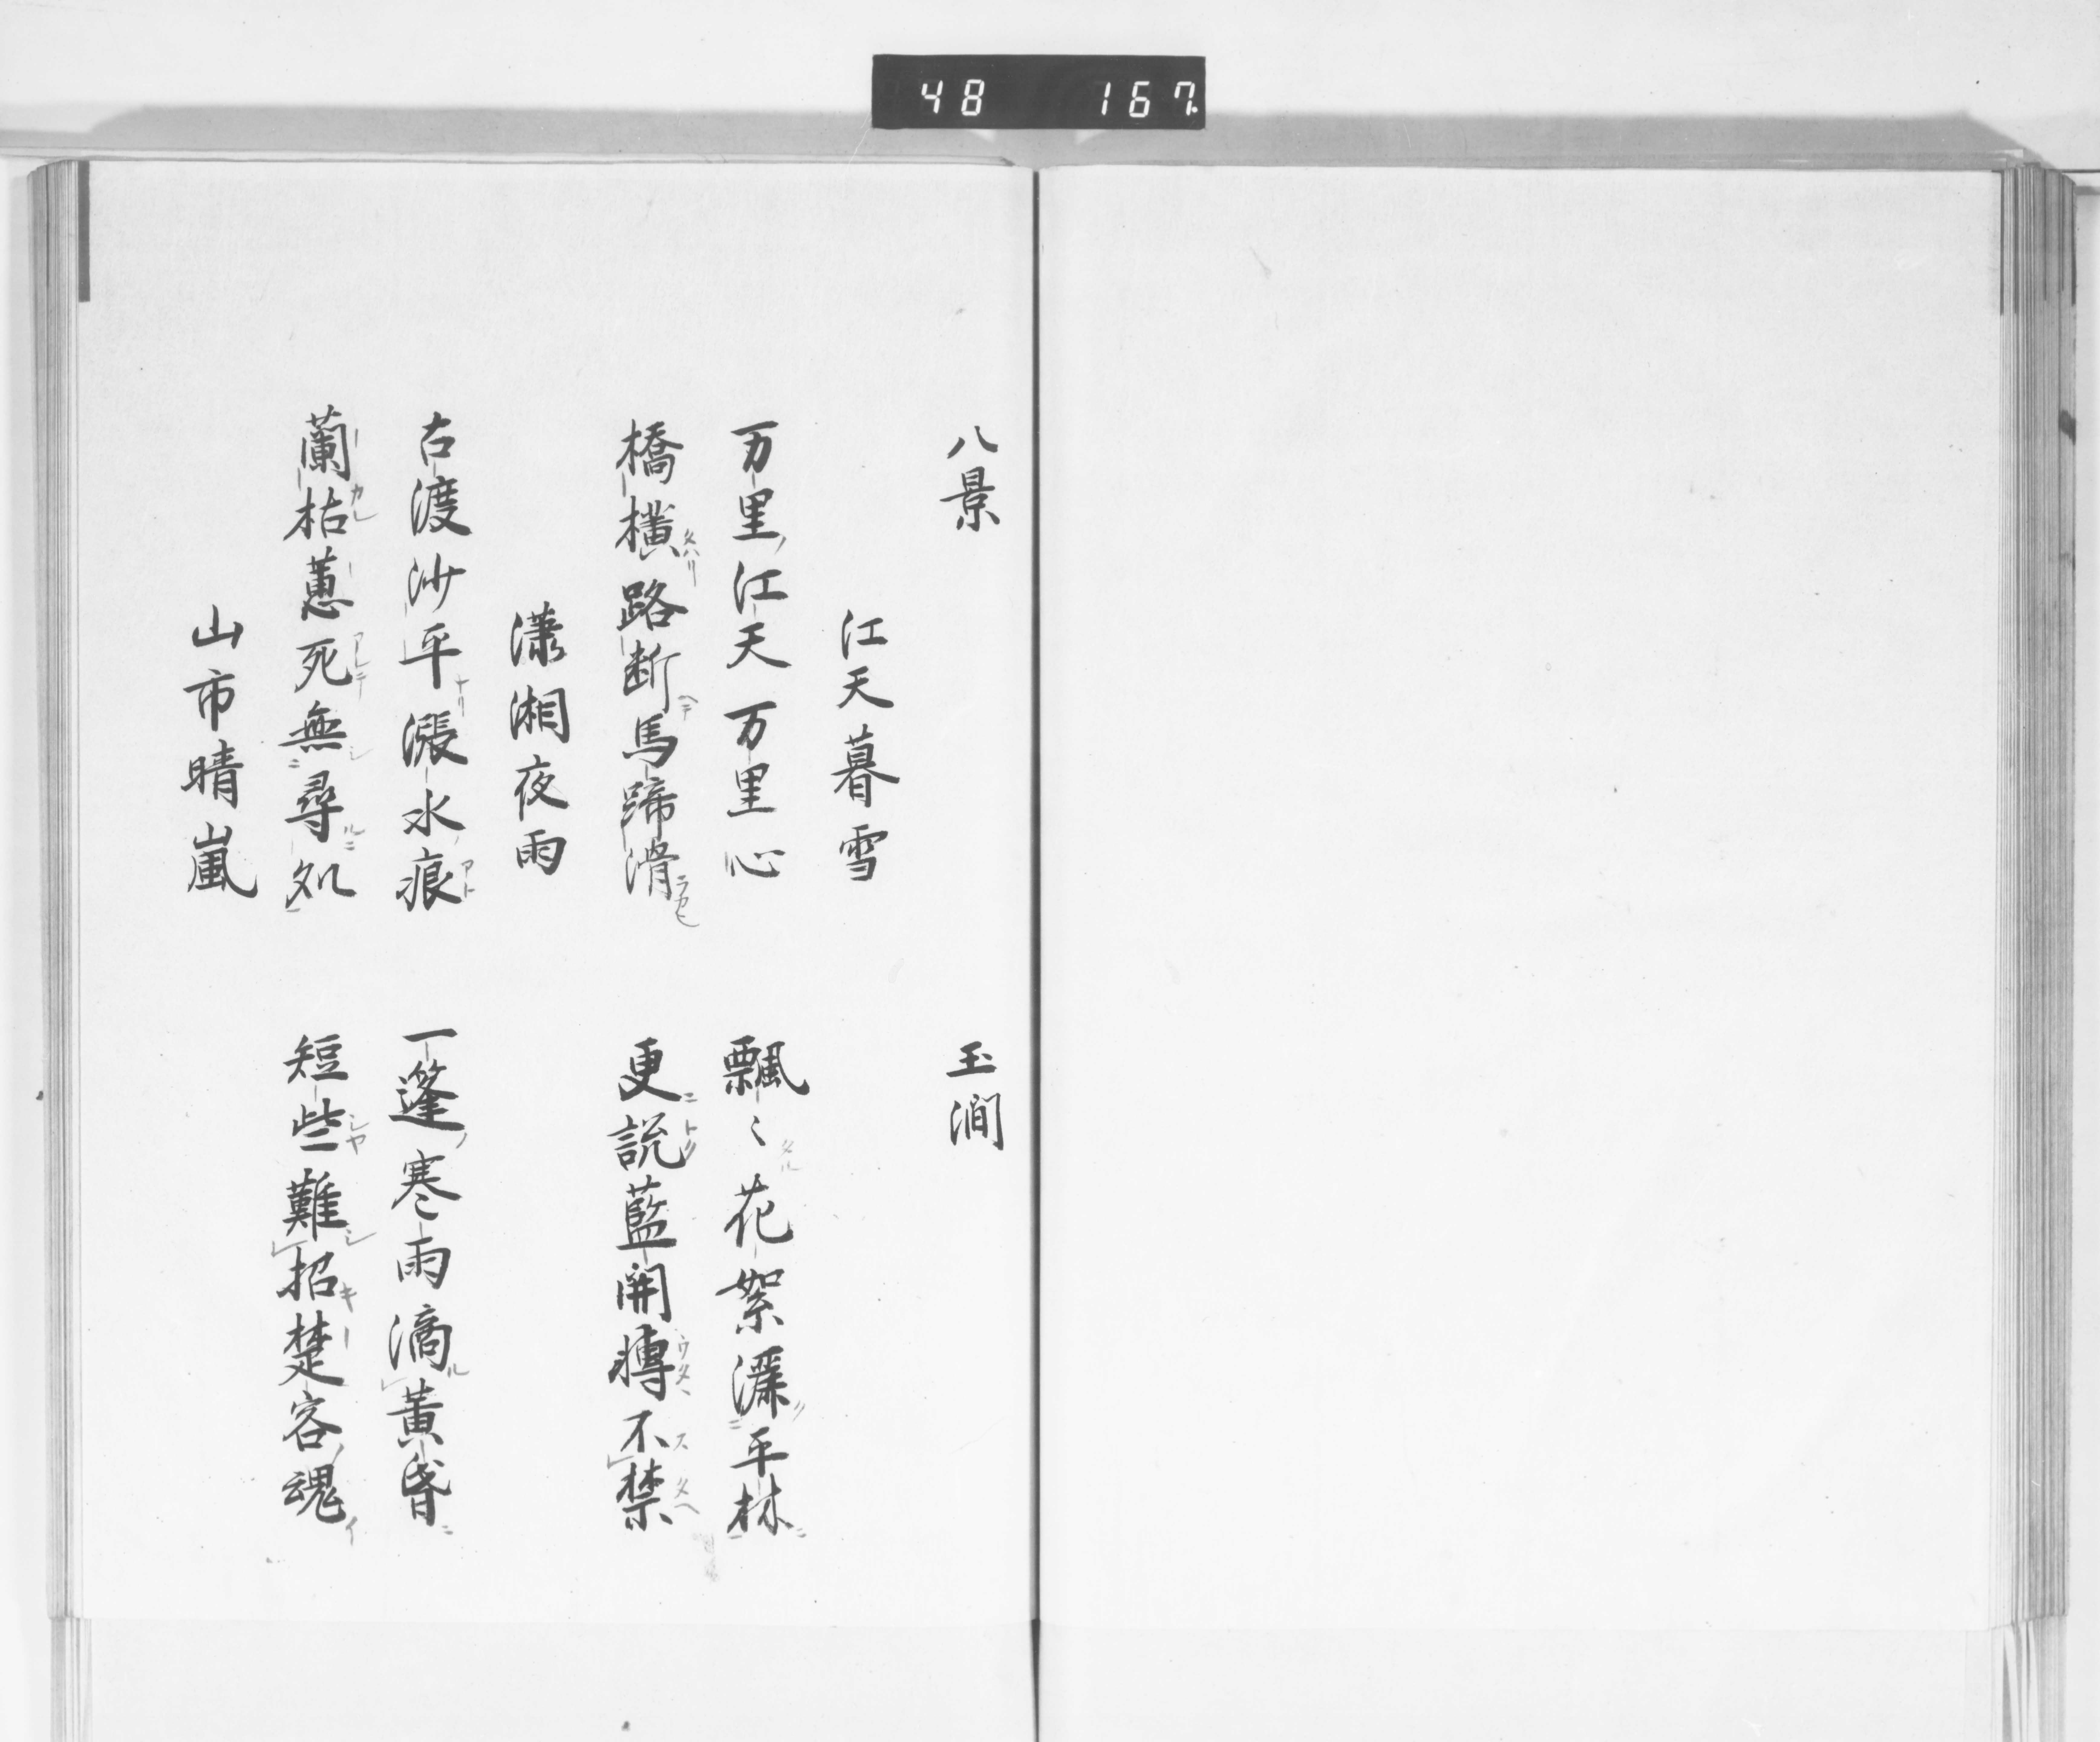 48 167
八景 玉澗
江天暮雪
万里江天万里心 飄〻花絮灑平林
橋横路断馬蹄滑 更説藍開轉不禁
瀟湘夜雨
古渡沙平漲水痕 一篷寒雨滴黄昏
蘭枯蕙死無尋処 短些難招楚客魂
山市晴嵐